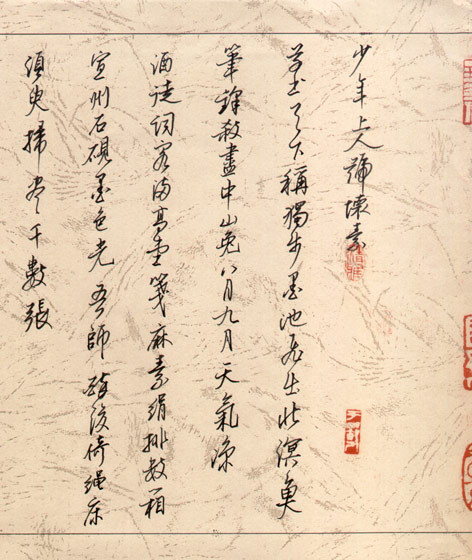 少年上人號懷素
草书天下稱獨步墨池飛出北溟魚
筆鋒殺盡中山兔八月九月天氣凉
酒徒詞客滿高堂箋麻素絹排數廂
宣州石硯墨色光吾師醉後倚繩床
須臾掃尽千數張